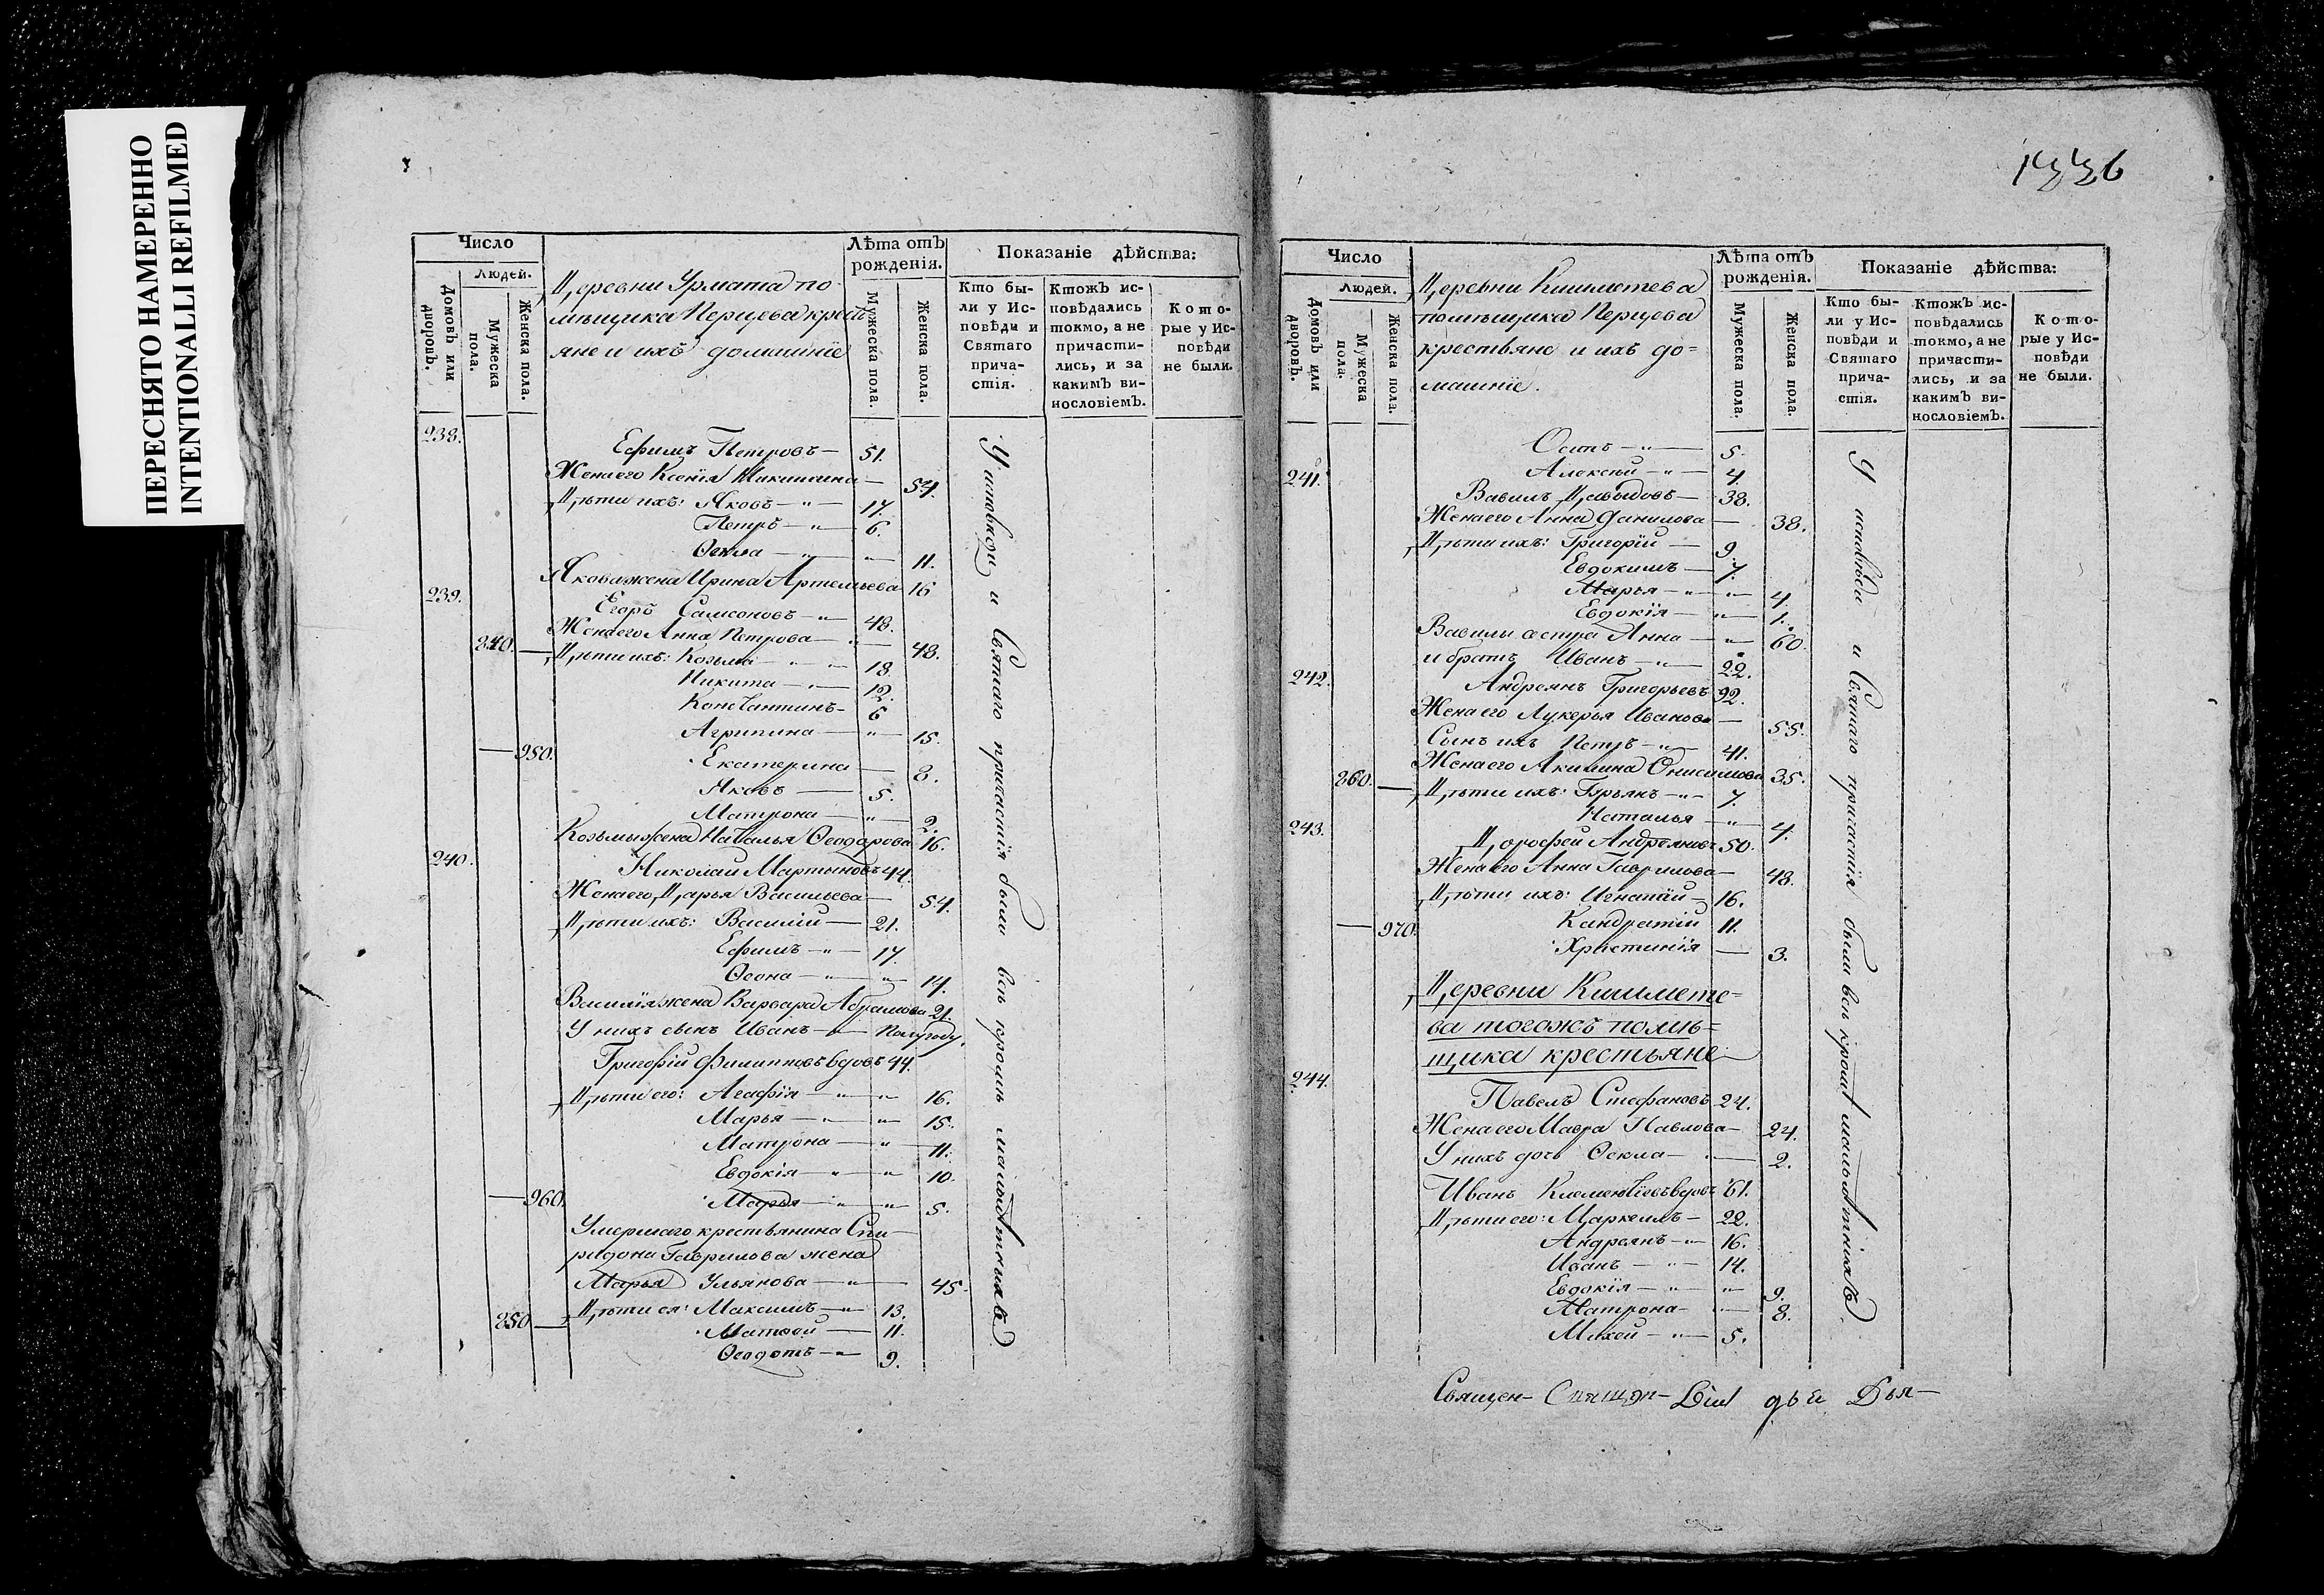 ПЕРЕСНЯТО НАМЕРЕННО
INTENTIONALLI REFILMED
Число
Людей.
Домовъ или дворовъ.
Мужеска пола.
Женска пола.
Деревни Урмата по
мѣщика Перцова кресть
яне и ихъ домашніе
Лѣта отъ рожденія.
Мужеска пола.
Женска пола.
Показаніе дѣйства:
Кто были у Исповѣди и Святаго причастія.
Ктожъ исповѣдались токмо, а не причастились, и за какимъ винословіемъ.
Которые у Исповѣди не были.
238.
Ефимъ Петровъ — 51.
Жена его Ксенія Никитина — 54.
Дѣти ихъ: Яковъ — " — 17.
Петръ — " — 6.
Ѳекла — " — " — 11.
Якова жена Ирина Артемьева 16
239.
Егоръ Самсоновъ — " 48.
Жена его Анна Петрова — " — 48.
840. — Дѣти ихъ: Козьма — " — " 18.
Никита — " — 12.
Константинъ — 6
Агрипина — " — 15.
— 950. Екатерина — 8.
Яковъ — 5.
Матрона — " — 2.
Козьмы жена Наталья Ѳеодорова 16.
240.
Николай Мартыновъ 44.
Жена его Дарья Васильева — 54.
Дѣти ихъ: Василій — 21.
Ефимъ — " — 17.
Ѳеона — " — " — 14.
Василія жена Варвара Абрамова 21.
У нихъ сынъ Иванъ — " — полугоду.
Григорій Филипповъ вдовъ 44.
Дѣти его: Агафія — " — " 16.
Марья — " — " 15.
Матрона — " — 11.
Евдокія — " — " 10.
— 960. Марья — " — " 5.
Умершаго крестьянина Спи
ридона Гаврилова жена
Марья Ульянова — " — 45.
Дѣти ея: Максимъ — " 13.
850 — Матвей — 11.
Ѳеодотъ — " 9.
У исповѣди и Святаго причастія были всѣ кромѣ малолѣтнихъ
1336
Число
Людей.
Домовъ или дворовъ.
Мужеска пола.
Женска пола.
Деревни Кишметева
помѣщика Перцова
крестьяне и ихъ до=
машніе.
Лѣта отъ рожденія.
Мужеска пола.
Женска пола.
Показаніе дѣйства:
Кто были у Исповѣди и Святаго причастія.
Ктожъ исповѣдались токмо, а не причастились, и за какимъ винословіемъ.
Которые у Исповѣди не были.
Осипъ — " — 5.
Алексѣй — " — 4.
241.
Вавилъ Давыдовъ — 38.
Жена его Анна Данилова — 38.
Дѣти ихъ: Григорій — 9.
Евдокимъ — 7.
Марья — " — " 4.
Евдокія — " — 1.
Вавилы сестра Анна — " — 60.
и братъ Иванъ — " — 22.
242.
Андреянъ Григорьевъ 92.
Жена его Лукерья Иванова — 55.
Сынъ ихъ Петръ — " — 41.
Жена его Акилина Онисимова 35.
860. — Дѣти ихъ: — " — 7.
Наталья — " — 4.
243.
Дорофей Андреяновъ 50.
Жена его Анна Гаврилова — 48.
Дѣти ихъ: Игнатій — 16.
— 970. Кандратій 11.
Христинія — 3.
Деревни Кишмете=
ва тогожъ помѣ=
щика крестьяне
244.
Павелъ Стефановъ 24.
Жена его Мавра Павлова — 24.
У нихъ дочь Ѳекла — " — 2.
Иванъ Клементіевъ вдовъ 61.
Дѣти его: Маркелъ — 22.
Андреянъ — " — 16.
Иванъ — " — 14.
Евдокія — " — " 9.
Матрона — " — 8.
Михей — " — 5.
У исповѣди и Святаго причастія были всѣ кромѣ малолѣтнихъ
Священ-